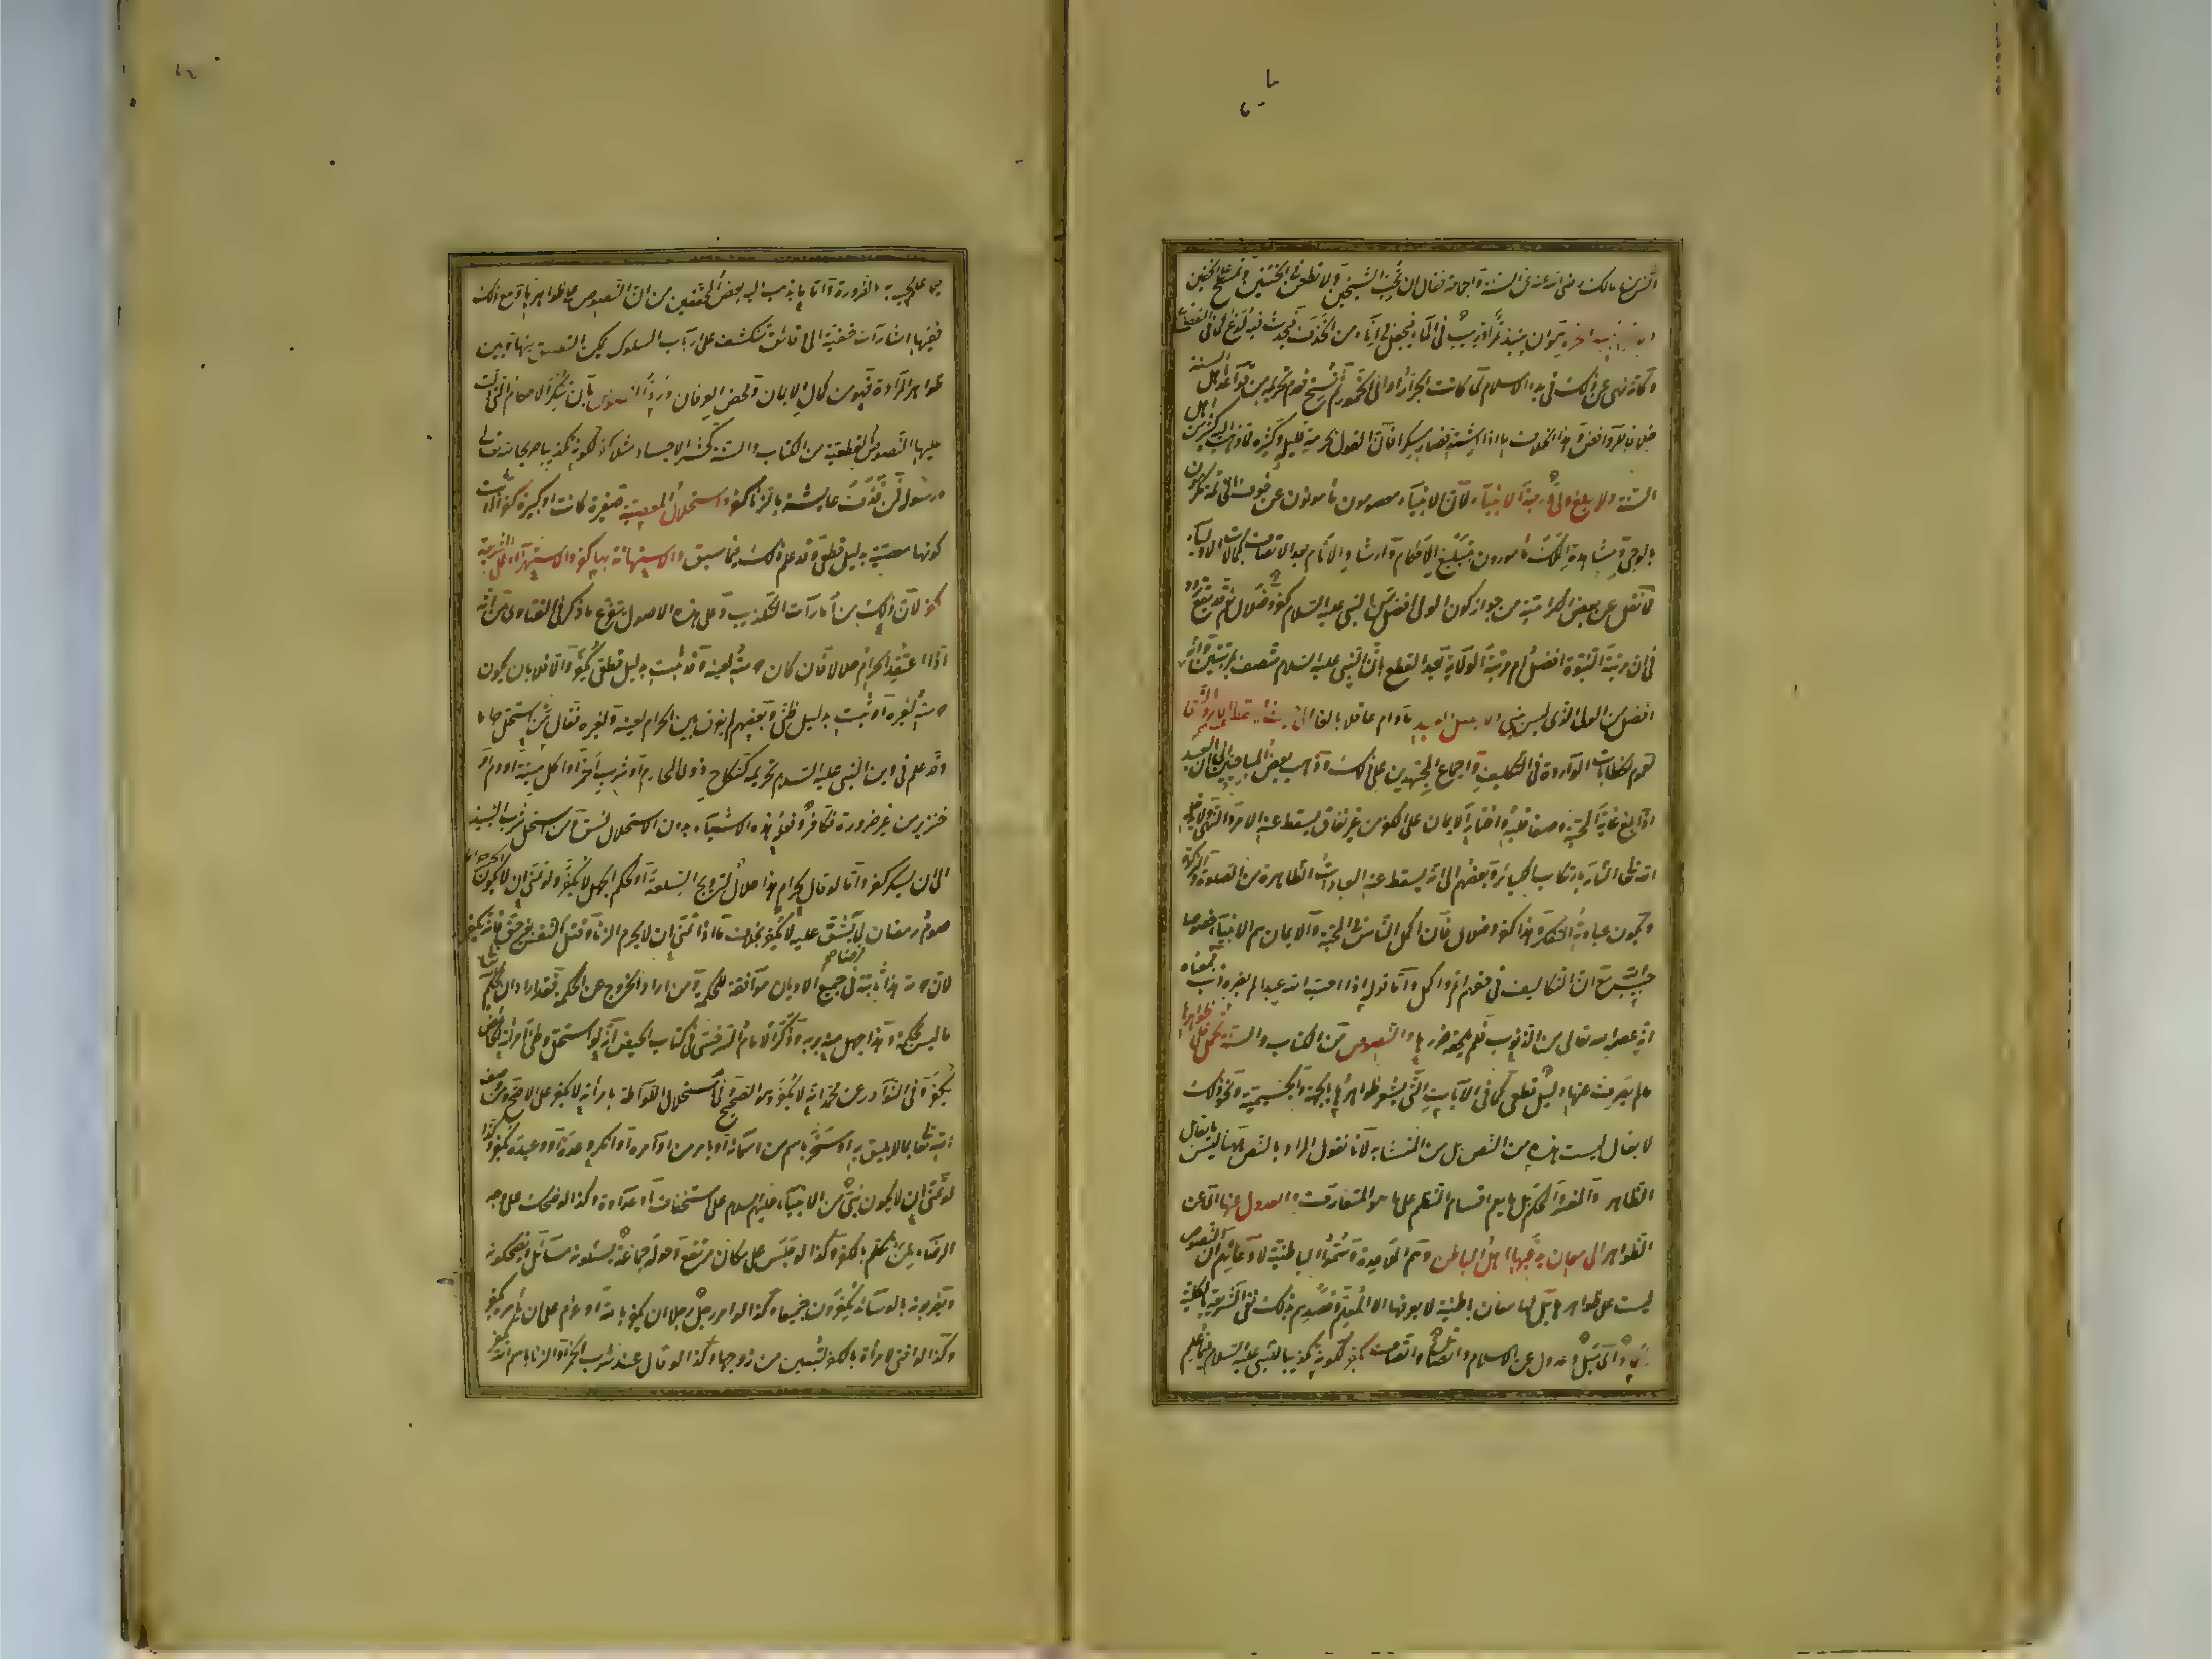 انس بن مالك رضي الله عنه عن السنة والجماعة فقال ان تحب الشيخين ولا تطعن في الختنين وتمسح على الخفين
ان ينبذ تمر او زبيب في الماء فيجعل في اناء من الخزف فيحدث فيه لذع كما في الفقاع
وكانه نهي عن ذلك في بدء الاسلام لما كانت الجرار اواني الخمور ثم نسخ فعدم تحريمه من قواعد اهل السنة
خلافا للروافض وهذا بخلاف ما اذا اشتد فصار مسكرا فان القول بحرمة قليله وكثيره مما ذهب اليه كثير من اهل
السنة ولا يبلغ ولي درجة الانبياء لان الانبياء معصومون مأمونون عن خوف الخاتمة مكرمون
بالوحي ومشاهدة الملك مأمورون بتبليغ الاحكام وارشاد الانام بعد الاتصاف بكمالات الاولياء
فما نقل عن بعض الكرامية من جواز كون الولي افضل من النبي عليه السلام كفر وضلال نعم قد يقع تردد
في ان مرتبة النبوة افضل ام مرتبة الولاية بعد القطع بان النبي عليه السلام متصف بالمرتبتين وانه
افضل من الولي الذي ليس بنبي ولا يصل العبد مادام عاقلا بالغا الى حيث يسقط عنه الامر والنهي
لعموم الخطابات الواردة في التكليف واجماع المجتهدين على ذلك وذهب بعض المباحيين الى ان العبد
اذا بلغ غاية المحبة وصفا قلبه واختار الايمان على الكفر من غير نفاق يسقط عنه الامر والنهي ولا يدخله
الله تعالى النار بارتكاب الكبائر وبعضهم الى انه يسقط عنه العبادات الظاهرة من الصلوة والزكوة
وتكون عبادته التفكر وهذا كفر وضلال فان اكمل الناس في المحبة والايمان هم الانبياء خصوصا
حبيب الله مع ان التكاليف في حقهم اتم واكمل واما قوله اذا احب الله عبدا لم يضره ذنب فمعناه
انه عصمه الله تعالى من الذنوب فلم يلحقه ضررها والنصوص من الكتاب والسنة تحمل على ظواهرها
ما لم يصرف عنها دليل قطعي كما في الآيات التي يشعر ظواهرها بالجهة والجسمية ونحو ذلك
لا يقال ليست هذه من النص بل من المتشابه لانا نقول المراد بالنص ههنا ليس ما يقابل
الظاهر والمفسر والمحكم بل ما يعم اقسام النظم على ما هو المتعارف والعدول عنها اي عن
الظواهر الى معان يدعيها اهل الباطن وهم الملاحدة وسموا الباطنية لادعائهم ان النصوص
ليست على ظواهرها بل لها معان باطنية لا يعرفها الا المعلم وقصدهم بذلك نفي الشريعة بالكلية
الحاد اي ميل وعدول عن الاسلام واتصال واتصاف بكفر لكونه تكذيبا للنبي عليه السلام فيما علم
مجيئه به بالضرورة واما ما يذهب اليه بعض المحققين من ان النصوص على ظواهرها ومع ذلك
ففيها اشارات خفية الى دقائق تنكشف على ارباب السلوك يمكن التطبيق بينها وبين
ظواهر المرادة فهو من كمال الايمان ومحض العرفان ورد النصوص بان ينكر الاحكام التي دلت
عليها النصوص القطعية من الكتاب والسنة كحشر الاجساد مثلا كفر لكونه تكذيبا صريحا لله تعالى
ورسوله فمن قذف عايشة بالزنا كفر واستحلال المعصية صغيرة كانت او كبيرة كفر اذا ثبت
كونها معصية بدليل قطعي وقد علم ذلك فيما سبق والاستهانة بها كفر والاستهزاء على الشريعة
كفر لان ذلك من امارات التكذيب وعلى هذه الاصول يتفرع ما ذكر في الفتاوى من انه
اذا اعتقد الحرام حلالا فان كان حرمته لعينه وقد ثبت بدليل قطعي يكفر والا فلا بان يكون
حرمته لغيره او ثبت بدليل ظني وبعضهم لم يفرق بين الحرام لعينه ولغيره فقال من استحل حراما
وقد علم في دين النبي عليه السلام تحريمه كنكاح ذوي المحارم او شرب الخمر او اكل ميتة او دم او
خنزير من غير ضرورة فكافر وفعل هذه الاشياء بدون الاستحلال فسق ومن استحل شرب النبيذ
الى ان يسكر كفر واما لو قال لحرام هذا حلال لترويج السلعة او بحكم الجهل لا يكفر ولو تمنى ان لا يكون الخمر حراما
صوم رمضان لما يشق عليه لا يكفر بخلاف ما اذا تمنى ان لا يحرم الزنا وقتل النفس بغير حق فانه يكفر
لان حرمة هذا ثابتة في جميع الاديان موافقة للحكمة ومن اراد الخروج عن الحكمة فقد اراد ان يحكم الله
ما ليس بحكمة وهذا جهل منه بربه وذكر الامام السرخسي في كتاب الحيض انه لو استحل وطئ امرأته الحائض
يكفر وفي النوادر عن محمد انه لا يكفر هو الصحيح وفي استحلال اللواطة بامرأته لا يكفر على الاصح ومن وصف
الله تعالى بما لا يليق به او سخر باسم من اسمائه او بامر من اوامره او انكر وعده او وعيده يكفر وكذا
لو تمنى ان لا يكون نبي من الانبياء عليهم السلام على استخفاف او عداوة وكذا لو ضحك على وجه
الرضاء لمن تكلم بالكفر وكذا لو جلس على مكان مرتفع وحوله جماعة يسئلونه مسائل ويضحكونه
ويضربونه بالوسائد يكفرون جميعا وكذا لو امر رجل رجلا ان يكفر بالله او عزم على ان يأمره بكفر
وكذا لو افتى لامرأة بالكفر لتبين من زوجها وكذا لو قال عند شرب الخمر او الزنا باسم الله